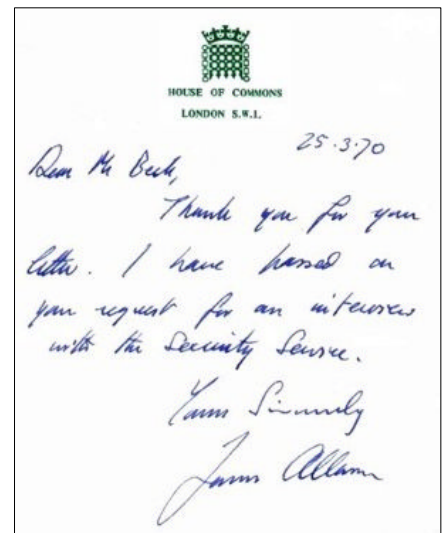 HOUSE OF COMMONS
LONDON S.W.1.
25.3.70
Dear Mr Beck,
Thank you for your
letter. I have passed on
your request for an interview
with the Security Service.
Yours Sincerely
James Allason